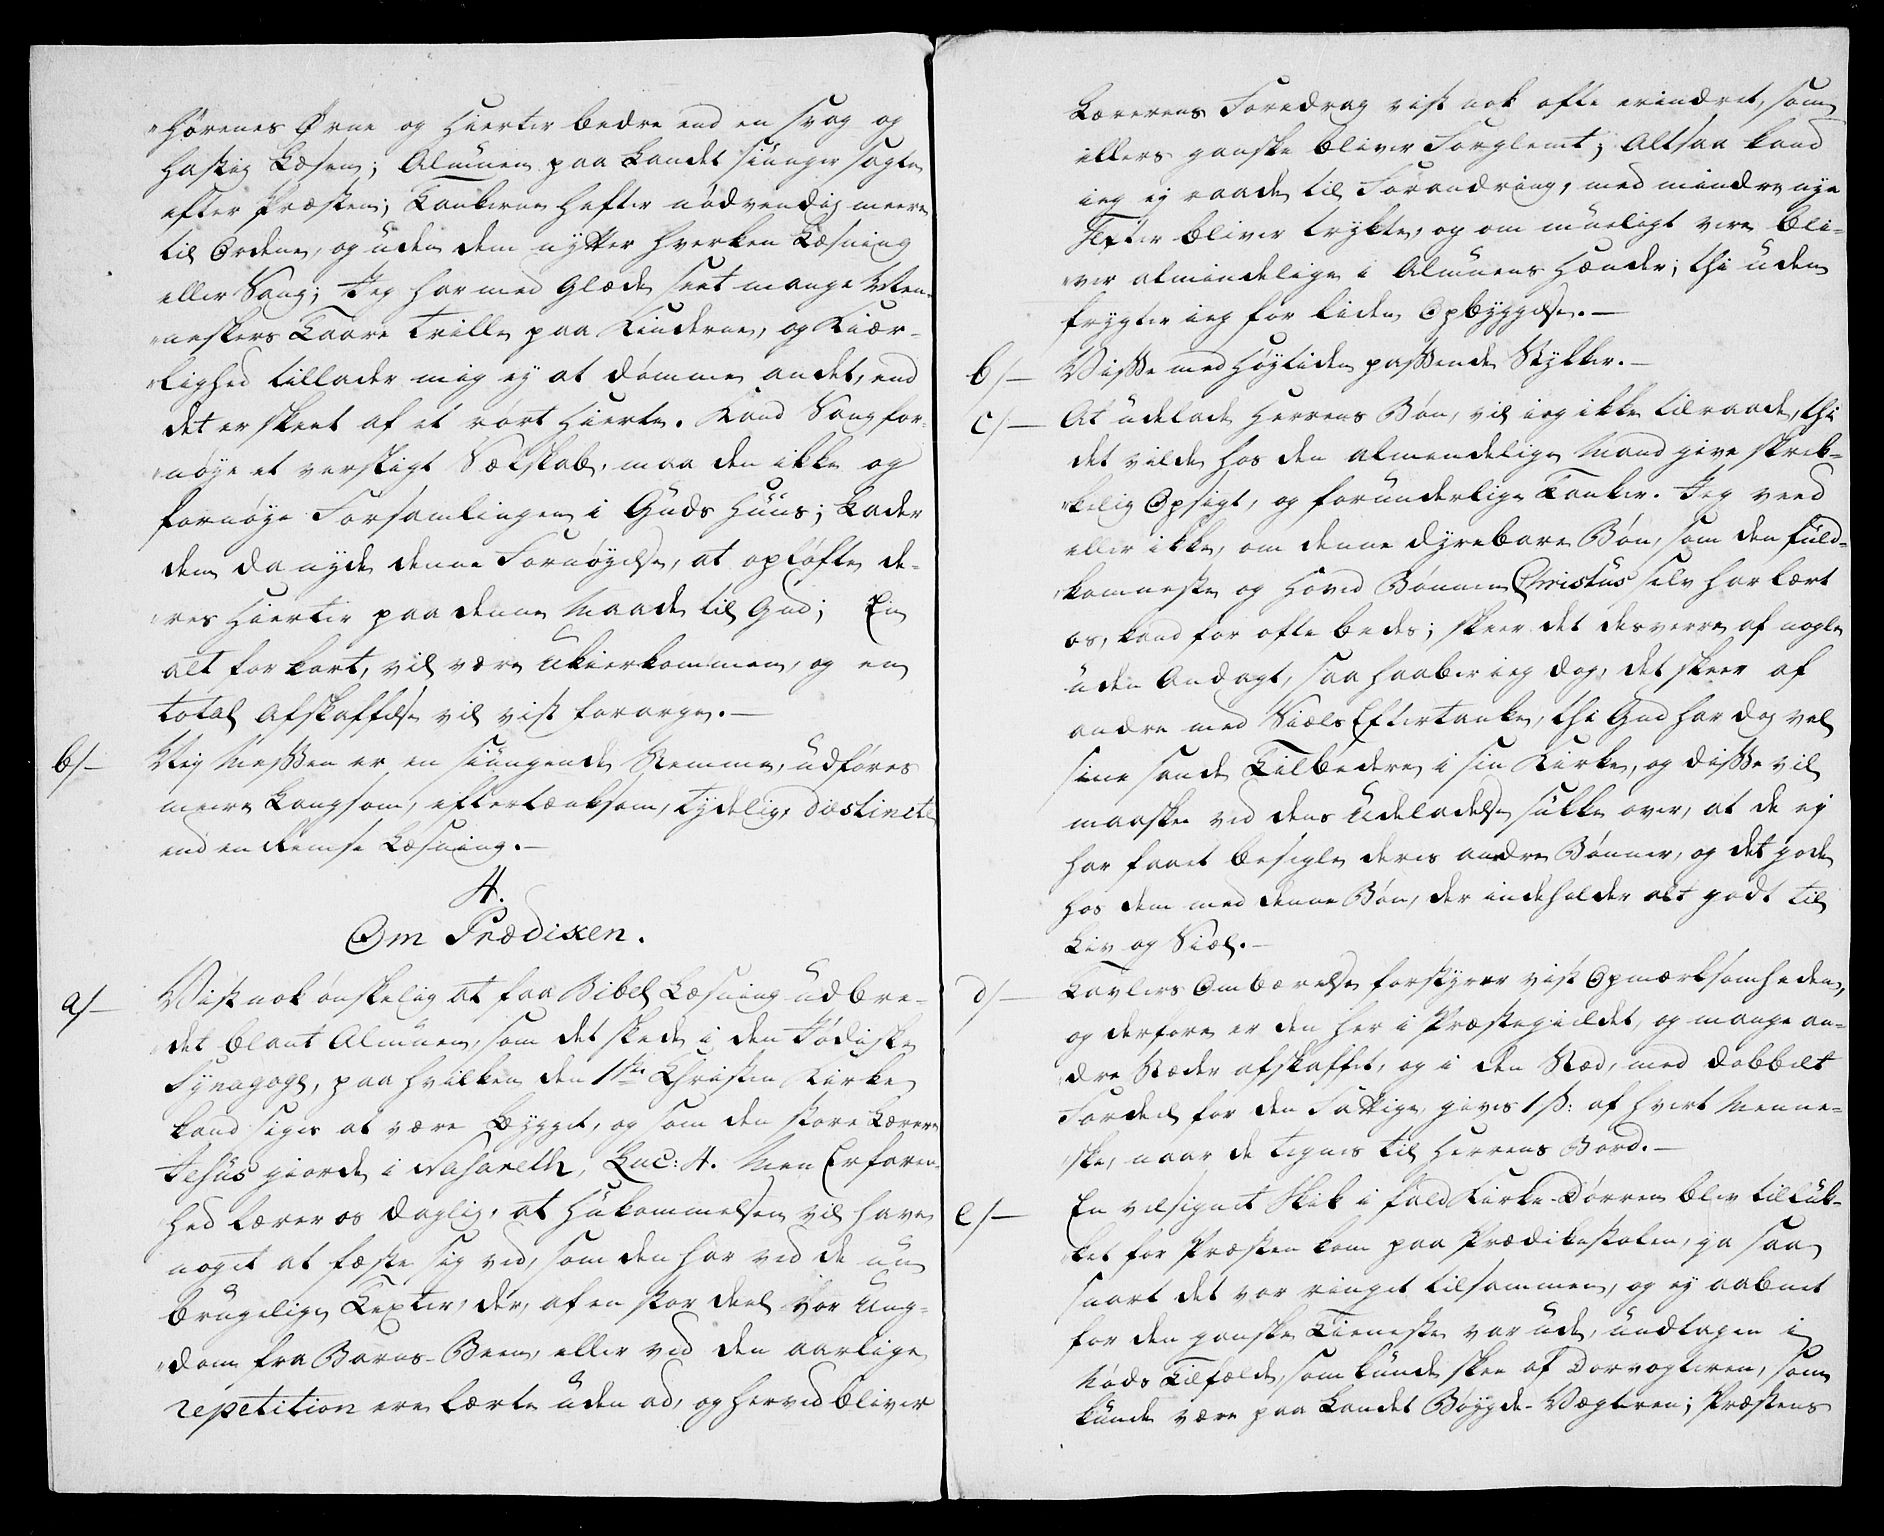 hørenes Ørne og Hierter bedre end en svag og
hastig Læsen; Almuen paa Landet siunger sagte
efter Præsten; Tankerne hefter nødvendig meere
til Ordene, og uden dem nytter hverken Læsning
eller Sang; Jeg har med Glæde seet mange Men-
neskers Taare trille paa Kinderne, og Kiær-
lighed tillader mig ej at dømme andet, end
det er skeet af et rørt Hierte. Kand Sang for-
nøye et verdsligt Selskab, maa den ikke og
fornøye Forsamlingen i Guds Huus; Lader
dem da nyde denne Fornøyelse, at opløfte de-
res Hierter paa denne Maade til Gud; En
alt for kort, vil være Ukierkommen, og en
total Afskaffelse vil vist forarge.-
b/- Mig Messen er en siungende Stemme, udføres
meere Langsom, eftertænksom, tydelig, distincte
end en Remse Læsning.-
4.
Om Prædiken.
a/- Vist nok ønskelig at faa Bibel Læsning udbre-
det blant Almuen, som det skede i den Jødiske
Synagoge, paa hvilken den 1ste Christen Kirke
kand siges at være bygget, og som den store Lærere
Jesus giorde i Nasareth, Luc: 4. Men Erfaren-
hed lærer os daglig, at Hukommelsen vil have
noget at fæste sig ved, som den har ved de nu
brugelige Texter, der, af en stor deel vor Ung-
dom fra Barns-Been, eller ved den aarlige
repetition ere lærte uden ad, og herved bliver
Lærerens Foredrag vist nok ofte erindret, som
ellers ganske bliver Forglemt; Altsaa kand
ieg ej raade til Forandring, med mindre nye
Texter bliver trykte, og om mueligt være bli-
ver almindelige i Almuens Hænder; thi uden
frygter ieg for liden Opbyggelse.-
b/- Visse med Høytiden passende Stykker.-
c/- At udelade Herrens Bøn, vil ieg ikke tilraade, thi
det vilde hos den almendelige Mand give skrek-
kelig Opsigt, og forunderlige Tanker. Jeg veed
eller ikke, om denne dyrebare Bøn, som den fuld-
komneste og Hoved Bønnen Christus selv har lært
os, kand for ofte bedes; skeer det desverre af nogle
uden Andagt, saa haaber ieg dog, det skeer af
andre med Siæls Eftertanke, thi Gud har dog vel
sine sande Tilbedere i sin Kirke, og disse vil
maaskee ved dens Udeladelse sukke over, at de ej
har faaet besigle deres andre Bønner, og det gode
hos dem med denne Bøn, der indeholder alt godt til
Liv og Siæl.-
d/- Tavlers Ombærelse forstyrer vist Opmærksomheden,
og derfore er den her i Præstegieldet, og mange an-
dre Stæder afskaffet, og i den Sted, med dobbelt
Fordeel for den Fattige, gives 1 ß: af hvert Menne-
ske, naar de tegnes til Herrens Bord.-
e/- En velsignet Skik i fald Kirke-Dørren blev tilluk-
ket før Præsten kom paa Prædikestolen, ja saa
snart det var ringet tilsammen, og ej aabnet
før den ganske Tieneste var ude, undtagen i
Nøds Tilfælde, som kunde skee af Dørvogteren, som
kunde være paa Landet Bøygde-Vægteren; Præstens